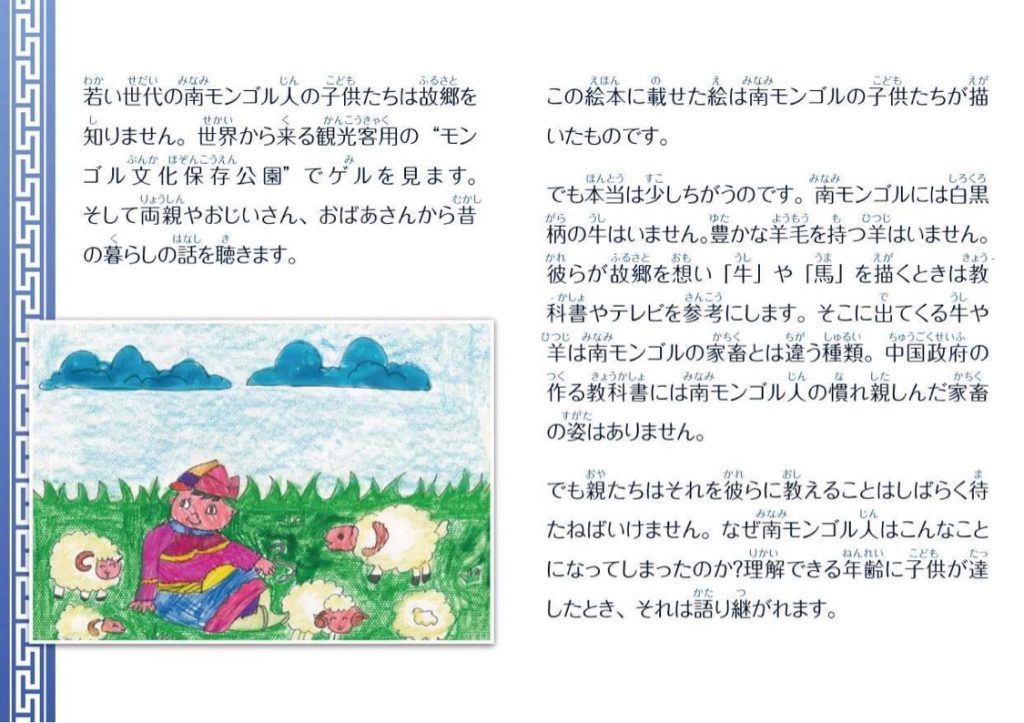 若い世代の南モンゴル人の子供たちは故郷を
知りません。世界から来る観光客用の“モン
ゴル文化保存公園”でゲルを見ます。
そして両親やおじいさん、おばあさんから昔
の暮らしの話を聴きます。
この絵本に載せた絵は南モンゴルの子供たちが描
いたものです。
でも本当は少しちがうのです。南モンゴルには白黒
柄の牛はいません。豊かな羊毛を持つ羊はいません。
彼らが故郷を想い「牛」や「馬」を描くときは教
科書やテレビを参考にします。そこに出てくる牛や
羊は南モンゴルの家畜とは違う種類。中国政府の
作る教科書には南モンゴル人の慣れ親しんだ家畜
の姿はありません。
でも親たちはそれを彼らに教えることはしばらく待
たねばいけません。なぜ南モンゴル人はこんなこと
になってしまったのか?理解できる年齢に子供が達
したとき、それは語り継がれます。